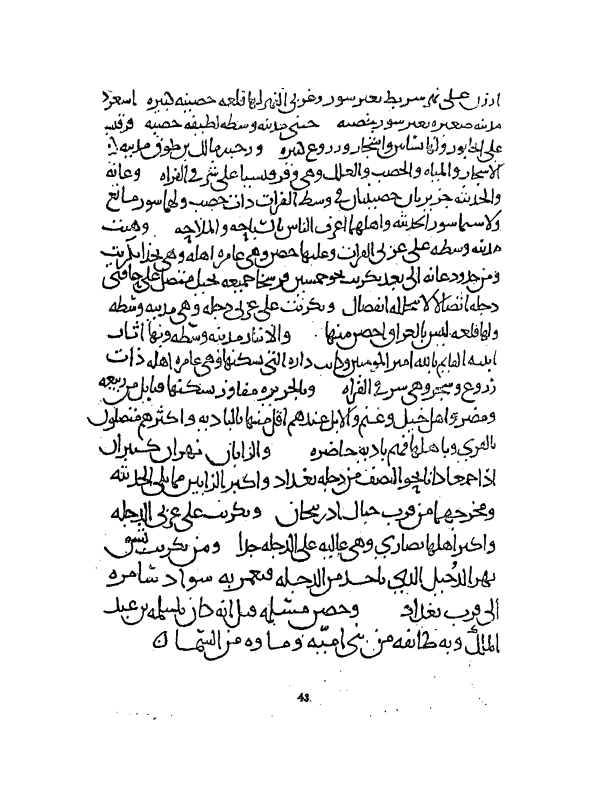 ارزن على نهر سربط بغير سور وغربى النهر لها قلعه حصينه كبيره اسعرد
مدينه صغيره بغير سور حصينه حيني مدينه وسطه لطيفه خصبه وقرقيسيا
على الخابور ولها بساتين واشجار وزروع كثيره ورحبه مالك بن طوق مدينه كثيرة
الاشجار والمياه والخصب والغلال وهى وقرقيسيا على شرقى الفراه وعانه
والحديثه جزيرتان حصينتان فى وسط الفرات ذات خصب ولها سور مانع
ولاسيما سور الحديثه واهلها اعرف الناس بالسباحه والملاحه وهيت
مدينه وسطه على غربى الفرات وعليها حصن وهى عامره اهله وهى بحذا تكريت
ومن حدود عانه الى بعد تكريت نحو خمسين فرسخا جميعه نخيل متصل على حافتى
دجله اتصالا لا يتخلله انفصال وتكريت على غربى دجله وهى مدينه وسطه
ولها قلعه ليس بالعراق احصن منها والانبار مدينه وسطه وبها اثار
ابنيه القايم بالله امير المومنين وكانت داره التى سكنها وهى عامره اهله ذات
زروع وشجر وهى شرقى الفراه وبالجزيره مفاوز سكنتها قبايل من ربيعه
ومضر اهل خيل وغنم والابل عندهم اقل منها بالباديه واكثرهم متصلون
بالقرى وباهلها فهم باديه حاضره والزابان نهران كبيران
اذا جمعا كانا نحو النصف من دجله بغداد واكبر الزابين مما يلى الحديثه
ومخرجهما من قرب جبال اذربيجان وتكريت على غربى الدجله
واكثر اهلها نصارى وهى عاليه على الدجله جدا ومن تكريت يشق
نهر الدجيل الذى ياخذ من الدجله فيعمر به سواد سامره
الى قرب بغداد وحصن مسلمه قيل انه كان لمسلمه بن عبد
الملك وبه طائفه من بنى اميه وماوه من السما
43.